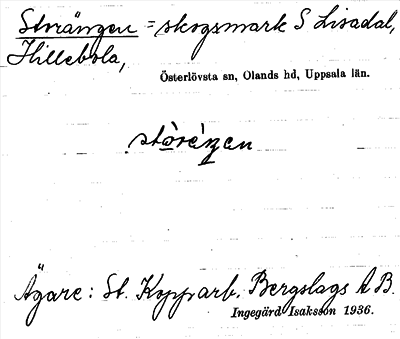 Storängen = skogsmark S Lisadal,
Hillebola,
Österlövsta sn, Olands hd, Uppsala län.
stòréŋen
Ägare: St. Kopparb. Bergslags A B.
Ingegärd Isaksson 1936.